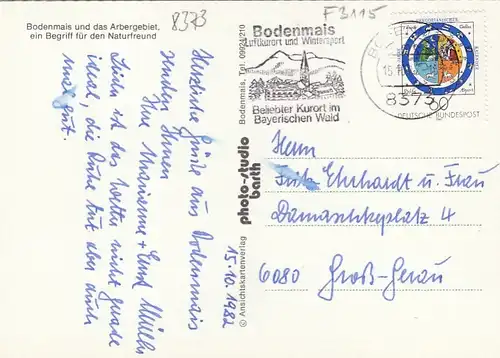 Bodenmais und das Arbergebiet,
ein Begriff für den Naturfreund
8373
F3115
Herzliche Grüße aus Bodenmais
senden Ihnen
Ihre Marianne + Ernst
Leider ist das Wetter nicht gerade
ideal, die Ruhe tut aber auch
mal gut.
15.10.1982
Bodenmais, Tel. 09924/210
photo-studio
barth
© Ansichtskartenverlag
Bodenmais
Luftkurort und Wintersport
Beliebter Kurort im
Bayerischen Wald
8373
60
DEUTSCHE BUNDESPOST
Herrn
Fritz Ehrhardt u. Frau
Damaschkeplatz 4
6080 Groß-Gerau